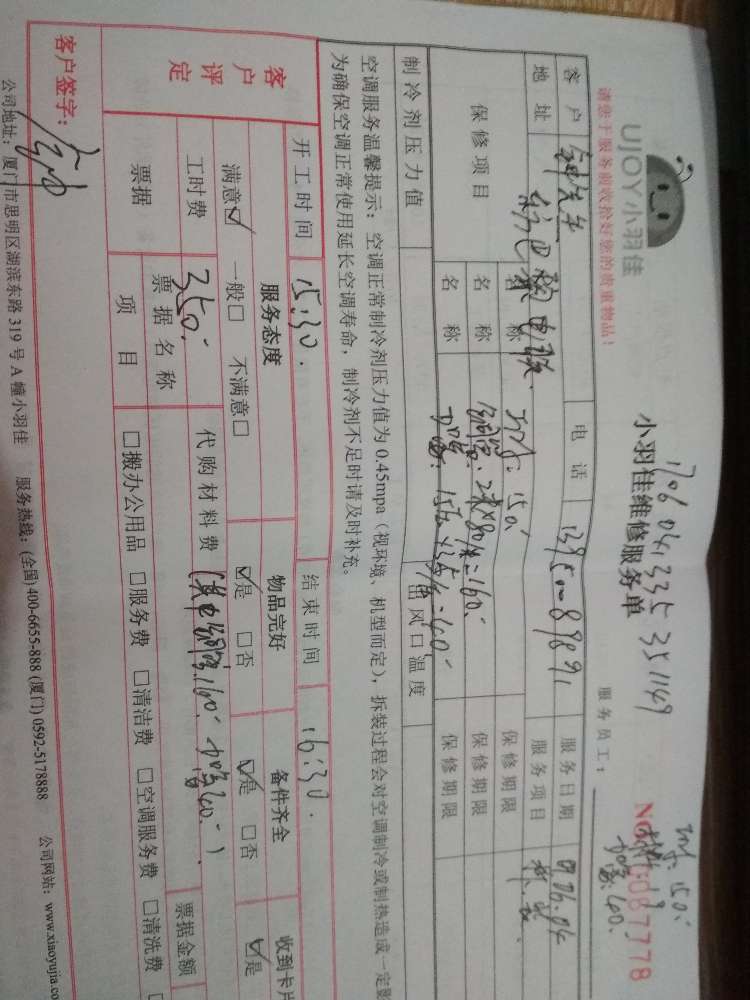 UJOY小羽佳
请您于服务前收拾好您的贵重物品!
1706 041335 351149
小羽佳维修服务单
服务员工:
150
加 管:40
NO 0087778
客户 先生 电话 服务日期
地址 服务项目
保修项目 名称 工时: 150 保修期限
名称 铜管: 2米×80/米=160 保修期限
名称 加 管: 保修期限
制冷剂压力值 出风口温度
空调服务温馨提示:空调正常制冷剂压力值为0.45mpa(视环境、机型而定),拆装过程会对空调制冷或制热造成一定影
为确保空调正常使用延长空调寿命,制冷剂不足时请及时补充。
客户评定
开工时间 15:30. 结束时间 16:30.
服务态度 物品完好 备件齐全 收到卡片
满意☑ 一般□ 不满意□ ☑是 □否 ☑是 □否 ☑是
工时费 350. 代购材料费 (其中铜管160. 加管40.)
票据 票据名称 票据金额
项目 □搬办公用品 □服务费 □清洁费 □空调服务费 □清洗费
客户签字:
公司地址:厦门市思明区湖滨东路319号A幢小羽佳 服务热线:(全国)400-6655-888 (厦门)0592-5178888 公司网站:www.xiaoyujia.com